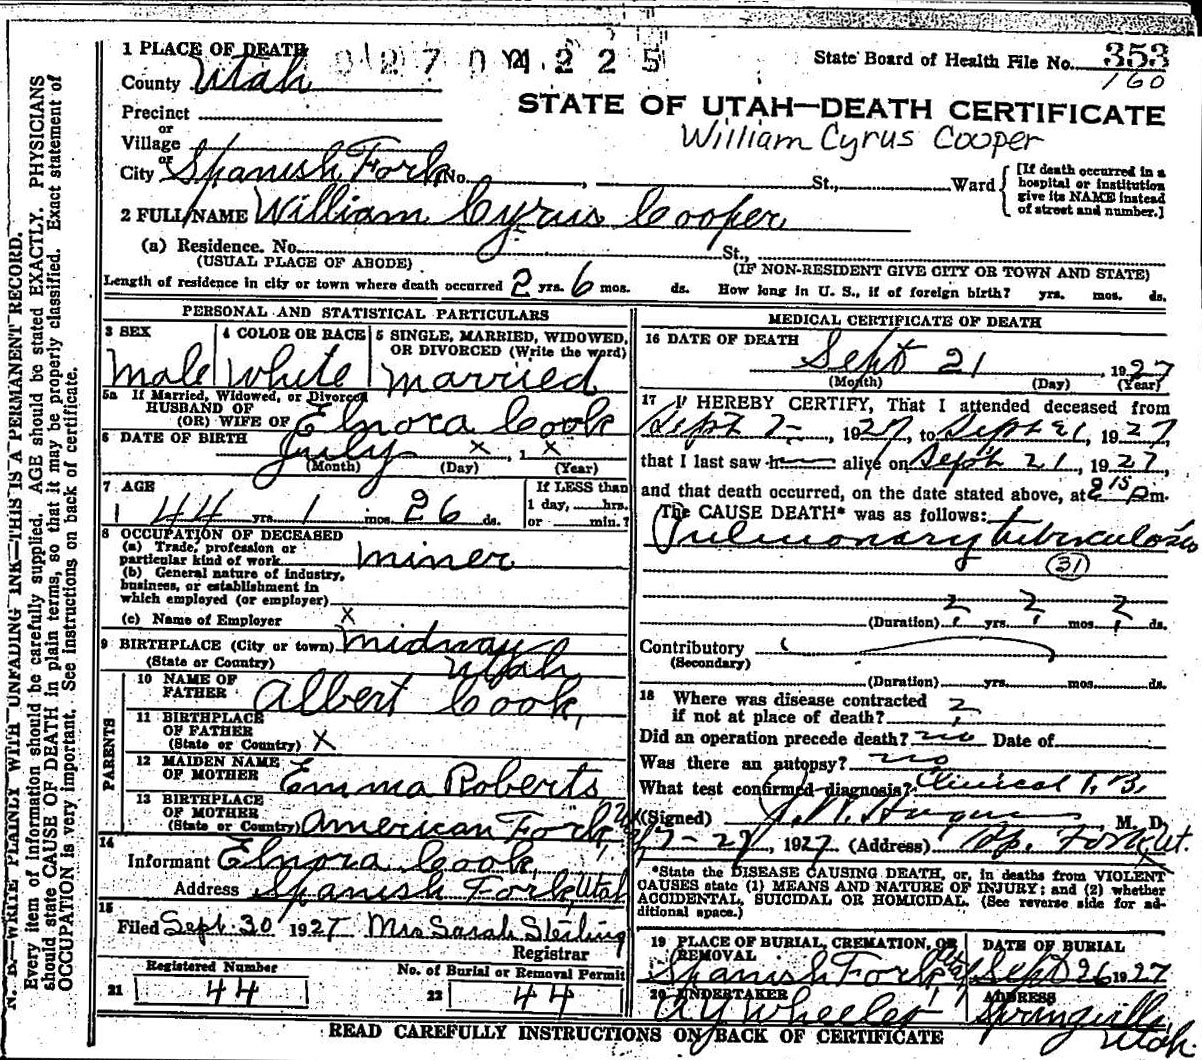 1 PLACE OF DEATH
County Utah
State Board of Health File No. 353
160
STATE OF UTAH—DEATH CERTIFICATE
William Cyrus Cooper
Precinct
or
Village
or
City Spanish Fork No. , St., Ward
[If death occurred in a hospital or institution give its NAME instead of street and number.]
2 FULL NAME William Cyrus Cooper
(a) Residence. No. St.,
(USUAL PLACE OF ABODE) (IF NON-RESIDENT GIVE CITY OR TOWN AND STATE)
Length of residence in city or town where death occurred 2 yrs. 6 mos. ds. How long in U. S., if of foreign birth? yrs. mos. ds.
PERSONAL AND STATISTICAL PARTICULARS
3 SEX 4 COLOR OR RACE 5 SINGLE, MARRIED, WIDOWED, OR DIVORCED (Write the word)
Male White Married
5a If Married, Widowed, or Divorced
HUSBAND OF
(OR) WIFE OF Elnora Cook
6 DATE OF BIRTH
July x , 1 x
(Month) (Day) (Year)
7 AGE If LESS than
44 yrs. 1 mos. 26 ds. 1 day, hrs.
or min.?
8 OCCUPATION OF DECEASED
(a) Trade, profession or
particular kind of work miner
(b) General nature of industry,
business, or establishment in
which employed (or employer)
(c) Name of Employer x
9 BIRTHPLACE (City or town) Midway
(State or Country) Utah
PARENTS
10 NAME OF
FATHER Albert Cook,
11 BIRTHPLACE
OF FATHER
(State or Country) X
12 MAIDEN NAME
OF MOTHER Emma Roberts
13 BIRTHPLACE
OF MOTHER
(State or Country) American Fork,
14
Informant Elnora Cook,
Address Spanish Fork, Utah
15
Filed Sept. 30 1927 Mrs Sarah Sterling
Registrar
Registered Number No. of Burial or Removal Permit
21 44 22 44
MEDICAL CERTIFICATE OF DEATH
16 DATE OF DEATH
Sept 21 , 1927
(Month) (Day) (Year)
17 I HEREBY CERTIFY, That I attended deceased from
Sept 2- , 1927, to Sept 21, 1927,
that I last saw h alive on Sept 21, 1927,
and that death occurred, on the date stated above, at 8 15 pm.
The CAUSE DEATH* was as follows:
Pulmonary tuberculosis
(31)
? ? ?
(Duration) yrs. mos. ds.
Contributory
(Secondary)
(Duration) yrs. mos. ds.
18 Where was disease contracted
if not at place of death? ?
Did an operation precede death? no Date of
Was there an autopsy? no
What test confirmed diagnosis? Clinical T. B.
(Signed) M. D.
, 1927 (Address) Sp. Fork Ut.
*State the DISEASE CAUSING DEATH, or, in deaths from VIOLENT
CAUSES state (1) MEANS AND NATURE OF INJURY; and (2) whether
ACCIDENTAL, SUICIDAL OR HOMICIDAL. (See reverse side for ad-
ditional space.)
19 PLACE OF BURIAL, CREMATION, OR REMOVAL DATE OF BURIAL
Spanish Fork Utah Sept 26 1927
20 UNDERTAKER ADDRESS
A Y Wheeler Springville,
Utah.
READ CAREFULLY INSTRUCTIONS ON BACK OF CERTIFICATE
N. B.—WRITE PLAINLY WITH UNFADING INK—THIS IS A PERMANENT RECORD.
Every item of information should be carefully supplied. AGE should be stated EXACTLY. PHYSICIANS
should state CAUSE OF DEATH in plain terms, so that it may be properly classified. Exact statement of
OCCUPATION is very important. See instructions on back of certificate.